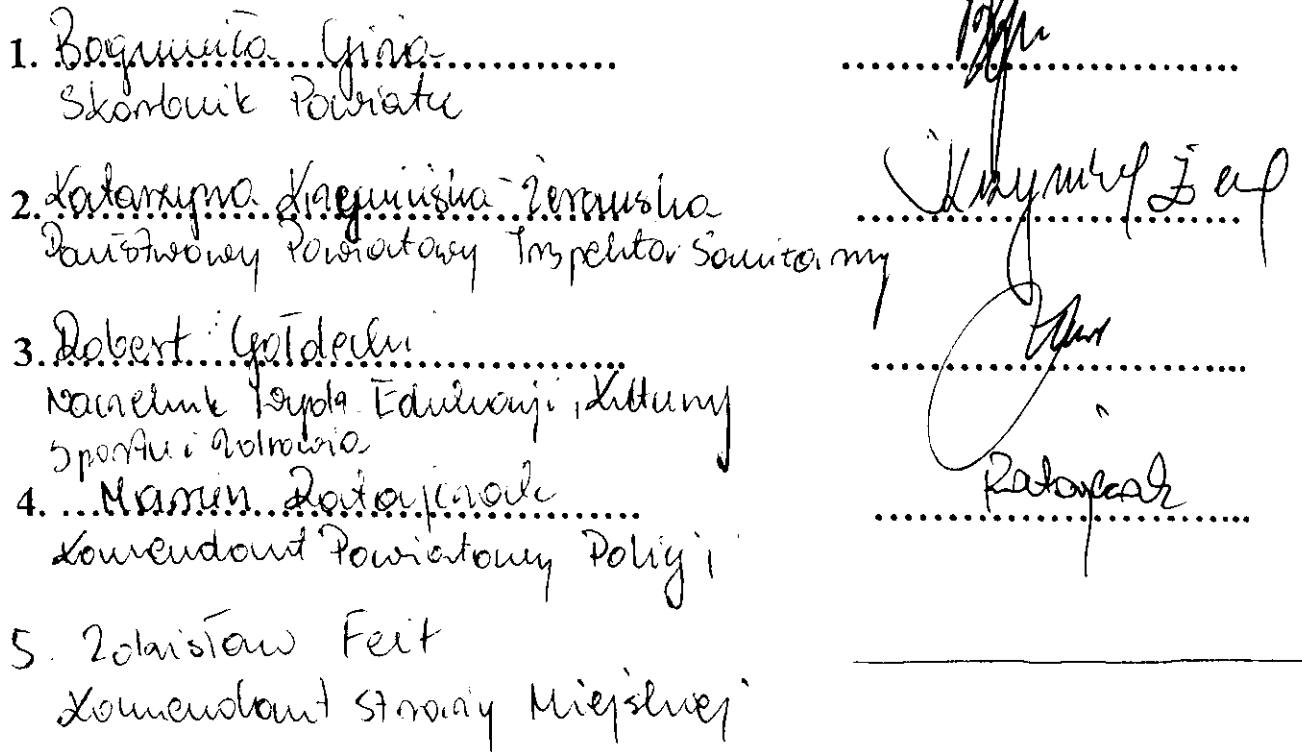 1. Bogumiła Gina
Skarbnik Powiatu
2. Katarzyna Krzymińska-Żerawska
Państwowy Powiatowy Inspektor Sanitarny
3. Robert Gołdecki
Naczelnik Wydz. Edukacji, Kultury
Sportu i Zdrowia
4. Marcin Ratajczak
Ratajczak
Komendant Powiatowy Policji
5. Zdzisław Feit
Komendant Straży Miejskiej